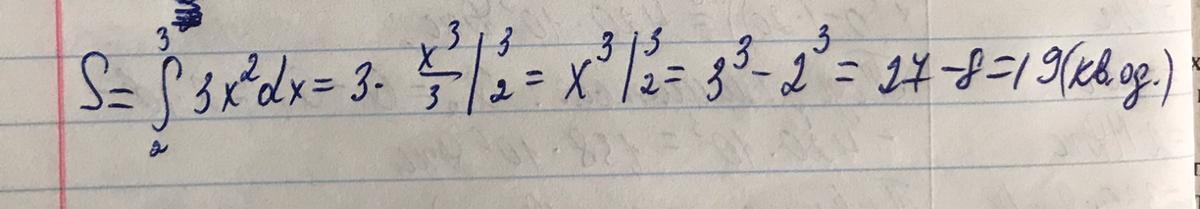 S = ∫₂³ 3x²dx = 3 · x³/3 |₂³ = x³|₂³ = 3³ - 2³ = 27 - 8 = 19 (кв.ед.)